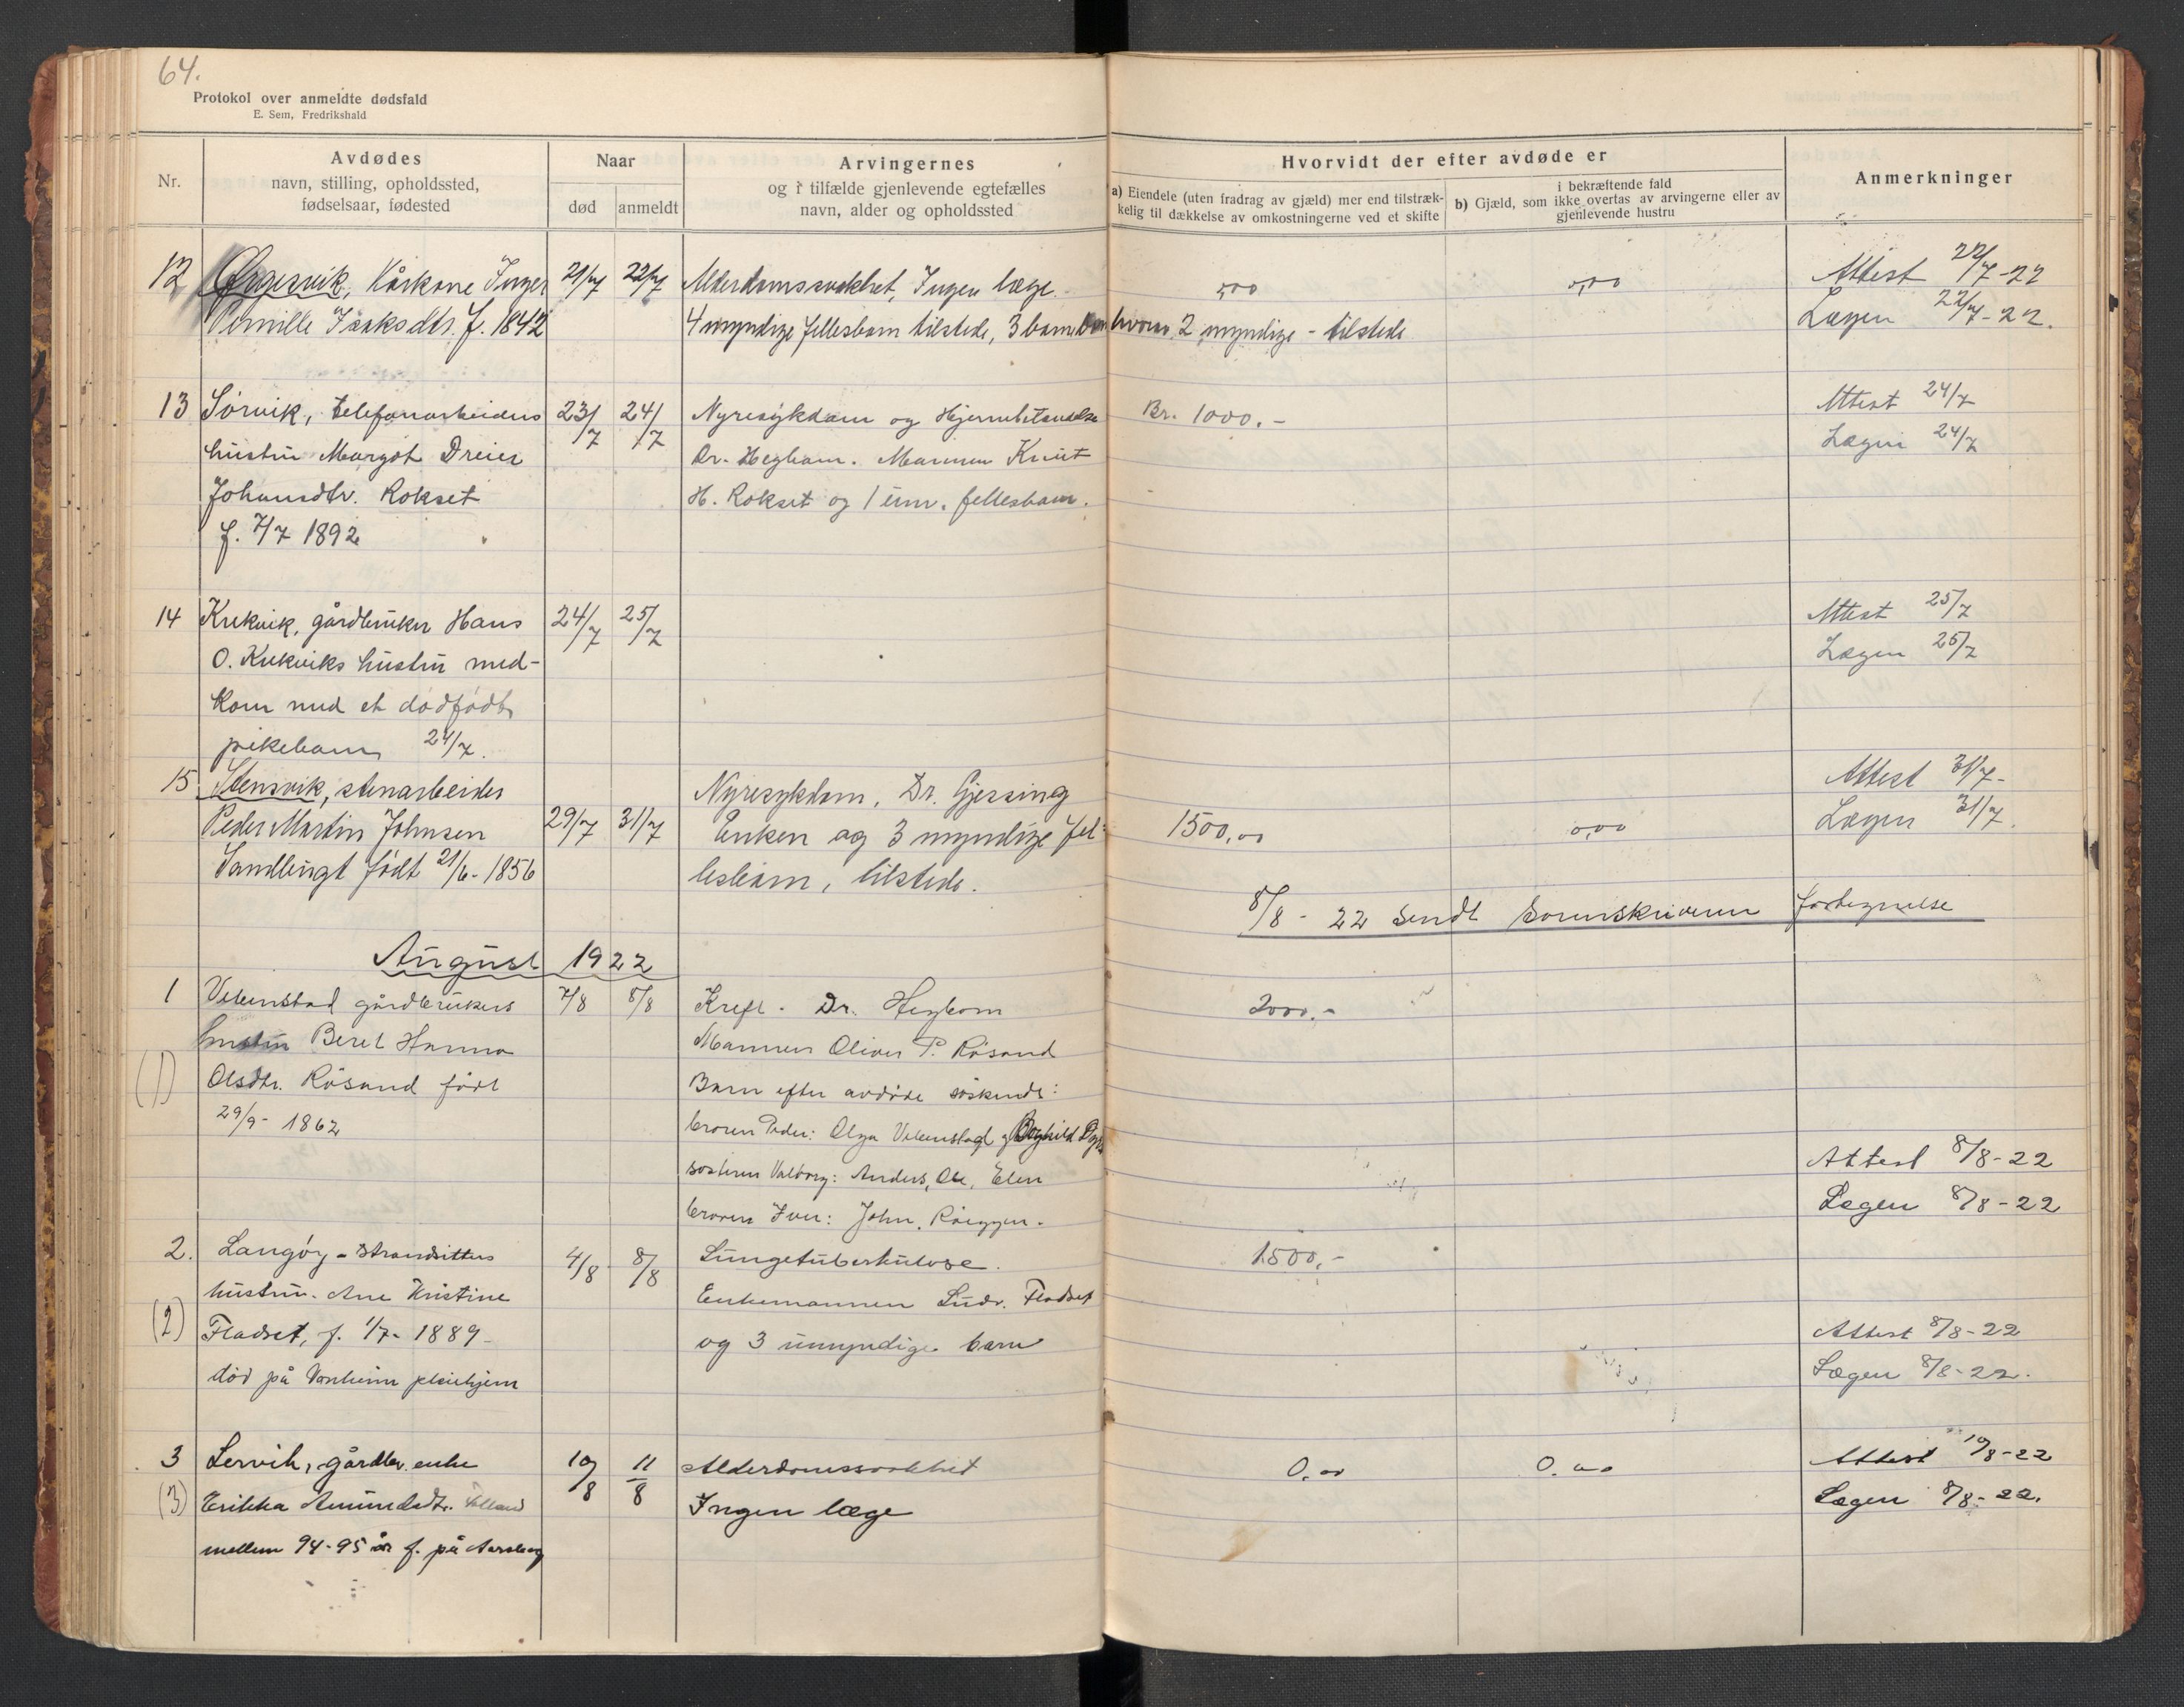 64.
Protokol over anmeldte dødsfald
E. Sem, Fredrikshald
Nr.
Avdødes
navn, stilling, opholdssted,
fødselsaar, fødested
Naar
død
anmeldt
Arvingernes
og i tilfælde gjenlevende egtefælles
navn, alder og opholdssted
Hvorvidt der efter avdøde er
a) Eiendele (uten fradrag av gjæld) mer end tilstræk-
kelig til dækkelse av omkostningerne ved et skifte
i bekræftende fald
b) Gjæld, som ikke overtas av arvingerne eller av
gjenlevende hustru
Anmerkninger
12 Ørgesvik, Kårkone Inger 21/7 22/7 Alderdomssvakhet, Ingen læge. 0,00 0,00 Attest 22/7-22
Pernille Isaksdtr. f. 1842 4 myndige fellesbarn tilstede, 3 barnebarn hvorav 2 myndige - tilstede Lægen 22/7-22.
13 Sörvik, telefonarbeiders 23/7 24/7 Nyresykdom og Hjernebetændelse Br. 1000.- Attest 24/7
hustru Margot Dreier Dr. Hegbom. Mannen Knut Lægen 24/7
Johansdtr. Rokset H. Rokset og 1 um. fellesbarn.
f. 7/7 1892
14 Krekvik, gårdbruker Hans 24/7 25/7 Attest 25/7
O. Krekviks hustru ned- Lægen 25/7
kom med et dödfödt
pikebarn 24/7.
15 Stensvik, stenarbeider Nyresykdom, Dr. Gjessing Attest 31/7-
Peder Martin Johnsen 29/7 31/7 Enken og 3 myndige fel- 1500,00 0,00 Lægen 31/7.
Sandlingt født 21/6-1856 lesbarn, tilstede.
8/8-22 sendt Sorenskriveren fortegnelse
August 1922
1 Vebenstad gårdbrukers 7/8 8/8 Kreft - Dr. Hegbom 2000,-
hustru Beret Hanna Mannen Oliver P. Rösand
(1) Olsdtr. Rösand född Barn efter avdöde söskende:
29/9-1862 broren Peder: Olga Vebenstad og Borghild
søsteren Valborg: Anders, Ole, Elen Attest 8/8-22
broren Iver: John, Lægen 8/8-22
2. Langöy - Strandsitters 4/8 8/8 Lungetuberkulose. 1500,-
hustru. Ane Kristine Enkemannen Ludv. Fladset
(2) Fladset, f. 1/7-1889- og 3 umyndige barn Attest 8/8-22
död på Vonheim pleiehjem Lægen 8/8-22.
3 Lervik, gårdbr. enke 10/8 11/8 Alderdomssvakhet 0,00 0,00 Attest 10/8-22
(3) Erikka Amundsdtr. Ingen læge Lægen 8/8-22.
mellem 94-95 år f. på